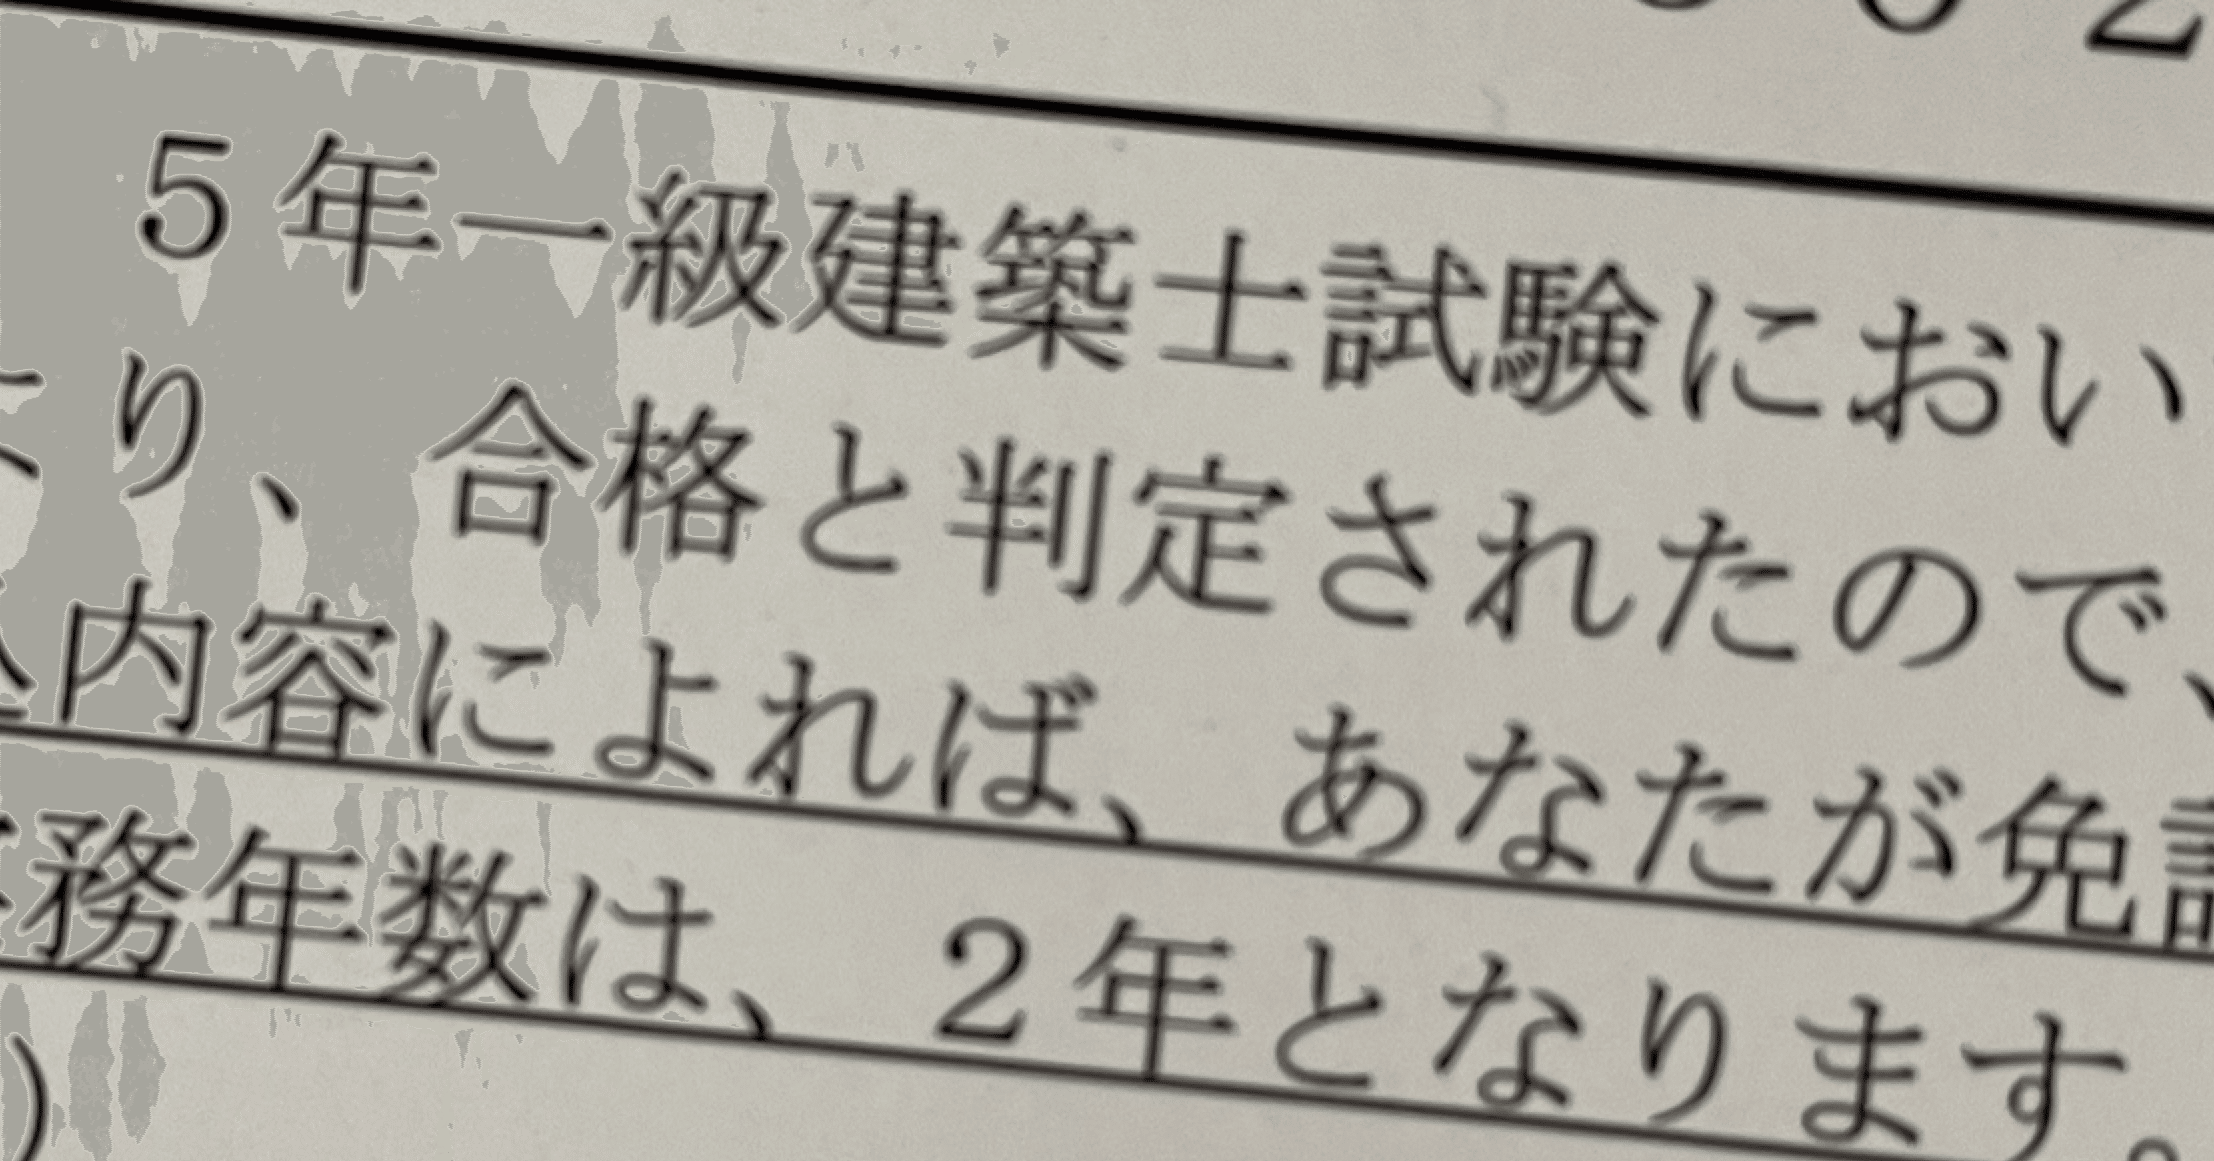 5年一級建築士試験におい
より、合格と判定されたので、
内容によれば、あなたが免許
務年数は、2年となります。
)